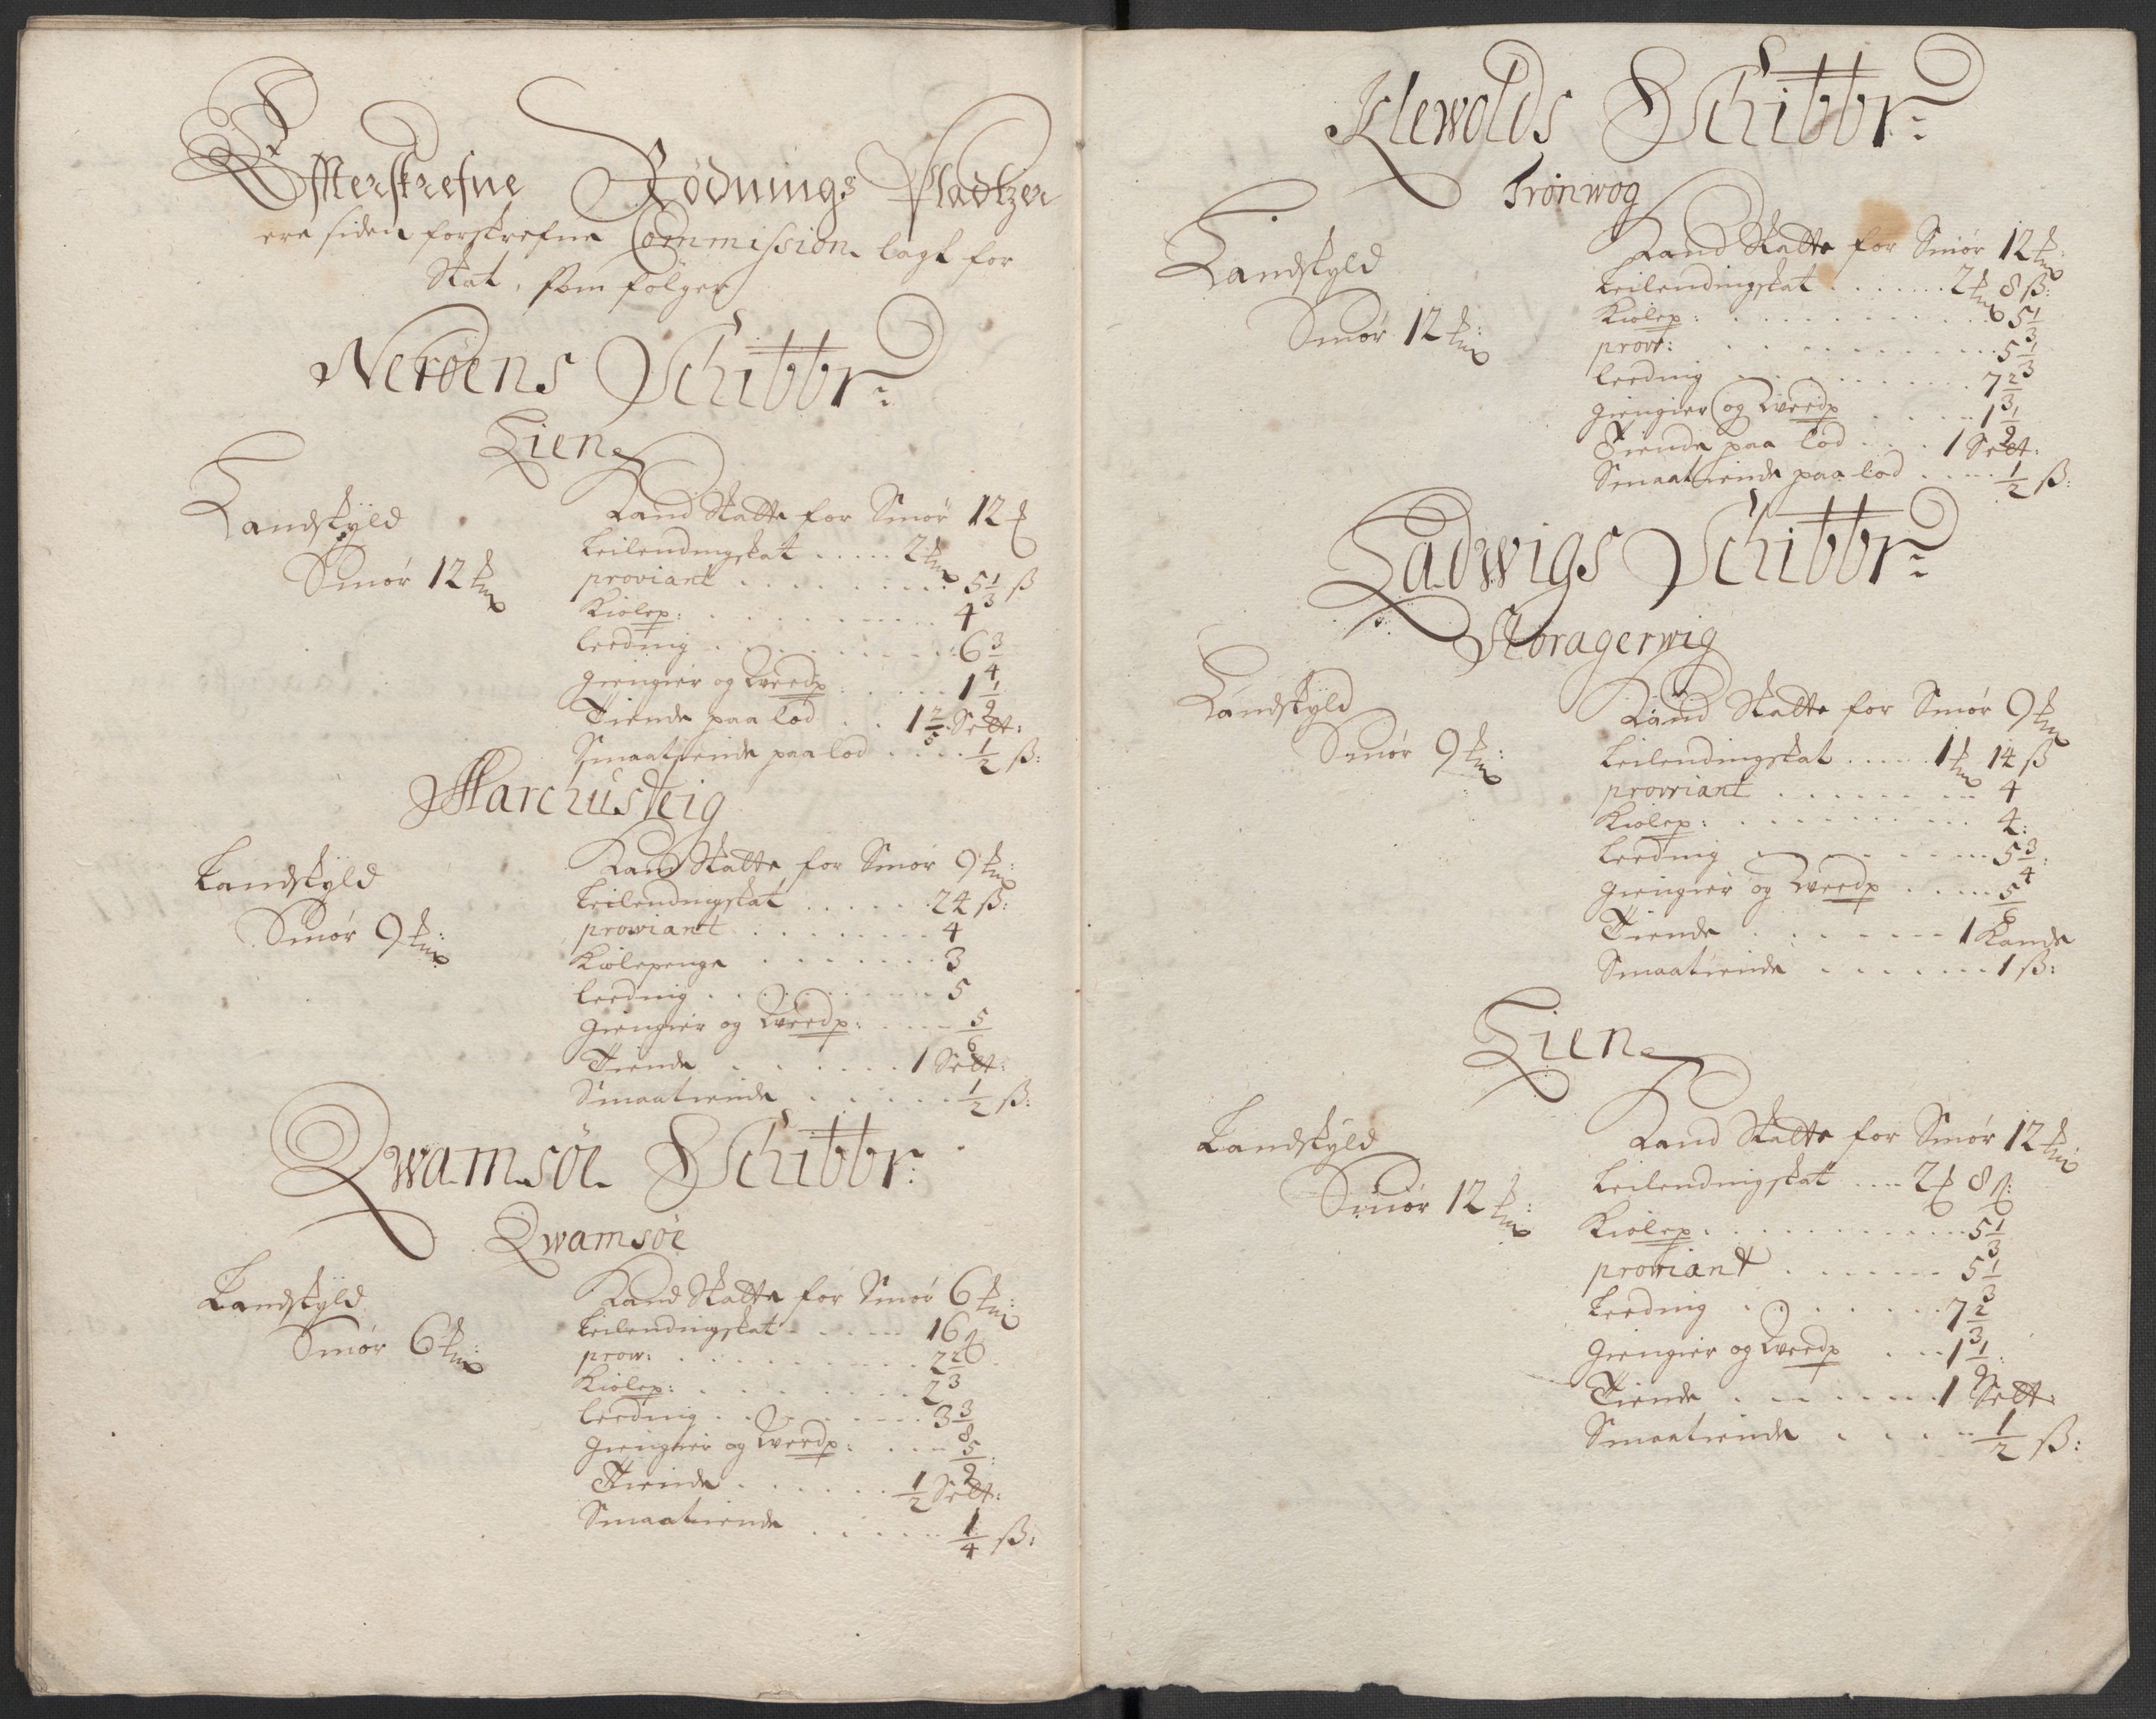 Efterskrefne Rødnings Pladtzer
ere siden forskrefne Commission lagt for
Skat, som følger
Nerøens Schibbr:
Lien
Landskyld
Smør 12 mk:
Land Skatte for Smør 12
Leilendingskat ..... 2 mk
proviant ........ 5 1/3 ß
Kiølep: ......... 4
Leeding ......... 6 3/4
Giengier og Tveedp: ..... 1 1/2
Tiende paa lod .. 1 2/5 Sett:
Smaatiende paa lod .... 1/2 ß:
Marchusteig
Landskyld
Smør 9 mk:
Land Skatte for Smør 9 mk:
Leilendingskat ...... 24 ß:
prowiant ........ 4
Kiølepenge ....... 3
Leeding ......... 5
Giengier og Tveedp: .... 5/6
Tiende ....... 1 Sett:
Smaatiende ...... 1/2 ß:
Qwamsøe Schibbr:
Qwamsøe
Landskyld
Smør 6 mk:
Land Skatte for Smør 6 mk:
Leilendingskat ..... 16 ß
prow: ......... 2 2/3
Kiølep: ........ 2
Leeding ........ 3 3/8
Giengier og Tveedp: ... 5/9:
Tiende ...... 1/2 Sett:
Smaatiende ..... 1/4 ß:
Klewolds Schibbr:
Trønwog
Landskyld
Smør 12 mk:
Land Skatte for Smør 12 mk:
Leilendingskat ...... 2 mk 8 ß:
Kiølep: ........... 5 1/3
prow: ........... 5 1/3
Leeding ......... 7 2/3
Giengier og Tveedp ..... 1 1/9
Tiende paa lod ... 1 Sett:
Smaatiende paa lod .... 1/2 ß:
Ladwigs Schibbr:
Storagerwig
Landskyld
Smør 9 mk:
Land Skatte for Smør 9 mk
Leilendingskat ..... 1 mk 14 ß
prowiant ........ 4
Kiølep: ......... 4:
Leeding ........ 5 3/4:
Giengier og Tveedp ..... 5/6
Tiende ....... 1 Kande
Smaatiende ....... 1 ß:
Lien
Landskyld
Smør 12 mk:
Land Skatte for Smør 12 mk
Leilendingskat .... 2 8 ß:
Kiølep: .......... 5 1/3
prowiant ....... 5 1/3
Leeding ........ 7 2/3
Giengier og Tveedp ... 1 1/9:
Tiende ....... 1 Sett:
Smaatiende ..... 1/2 ß: